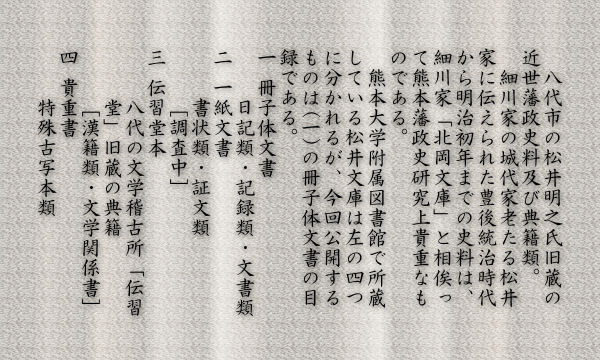 八代市の松井明之氏旧蔵の
近世藩政史料及び典籍類。
細川家の城代家老たる松井
家に伝えられた豊後統治時代
から明治初年までの史料は、
細川家「北岡文庫」と相俟っ
て熊本藩政史研究上貴重なも
のである。
熊本大学附属図書館で所蔵
している松井文庫は左の四つ
に分かれるが、今回公開する
ものは(一)の冊子体文書の目
録である。
一 冊子体文書
日記類・記録類・文書類
二 一紙文書
書状類・証文類
[調査中]
三 伝習堂本
八代の文学稽古所「伝習
堂」旧蔵の典籍
[漢籍類・文学関係書]
四 貴重書
特殊古写本類